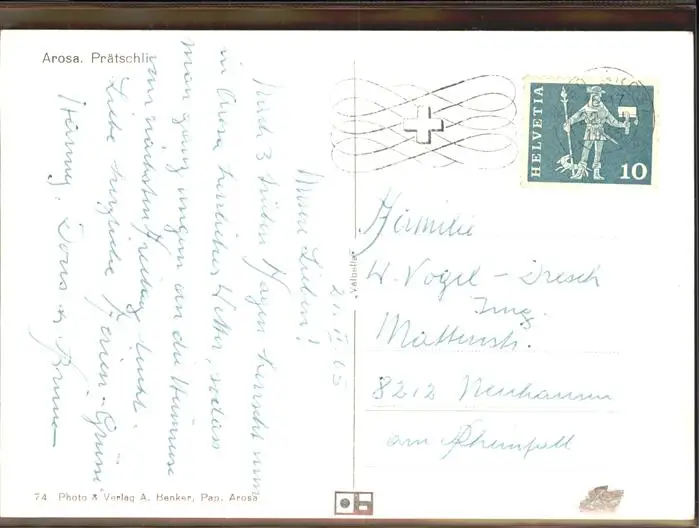 Arosa. Prätschlie
HELVETIA
10
21. II. 65
Meine Lieben!
Nach 3 trüben Tagen herrscht nun
in Arosa herrliches Wetter, sodass
man ganz ungern an die Heimreise
am nächsten Freitag denkt.
Liebe herzliche Ferien-Grüsse
Doris &
Familie
W. Vogel - Dresch
Ing.
Mattenstr.
8212 Neuhausen
am Rheinfall
74 Photo & Verlag A. Henker, Pap. Arosa